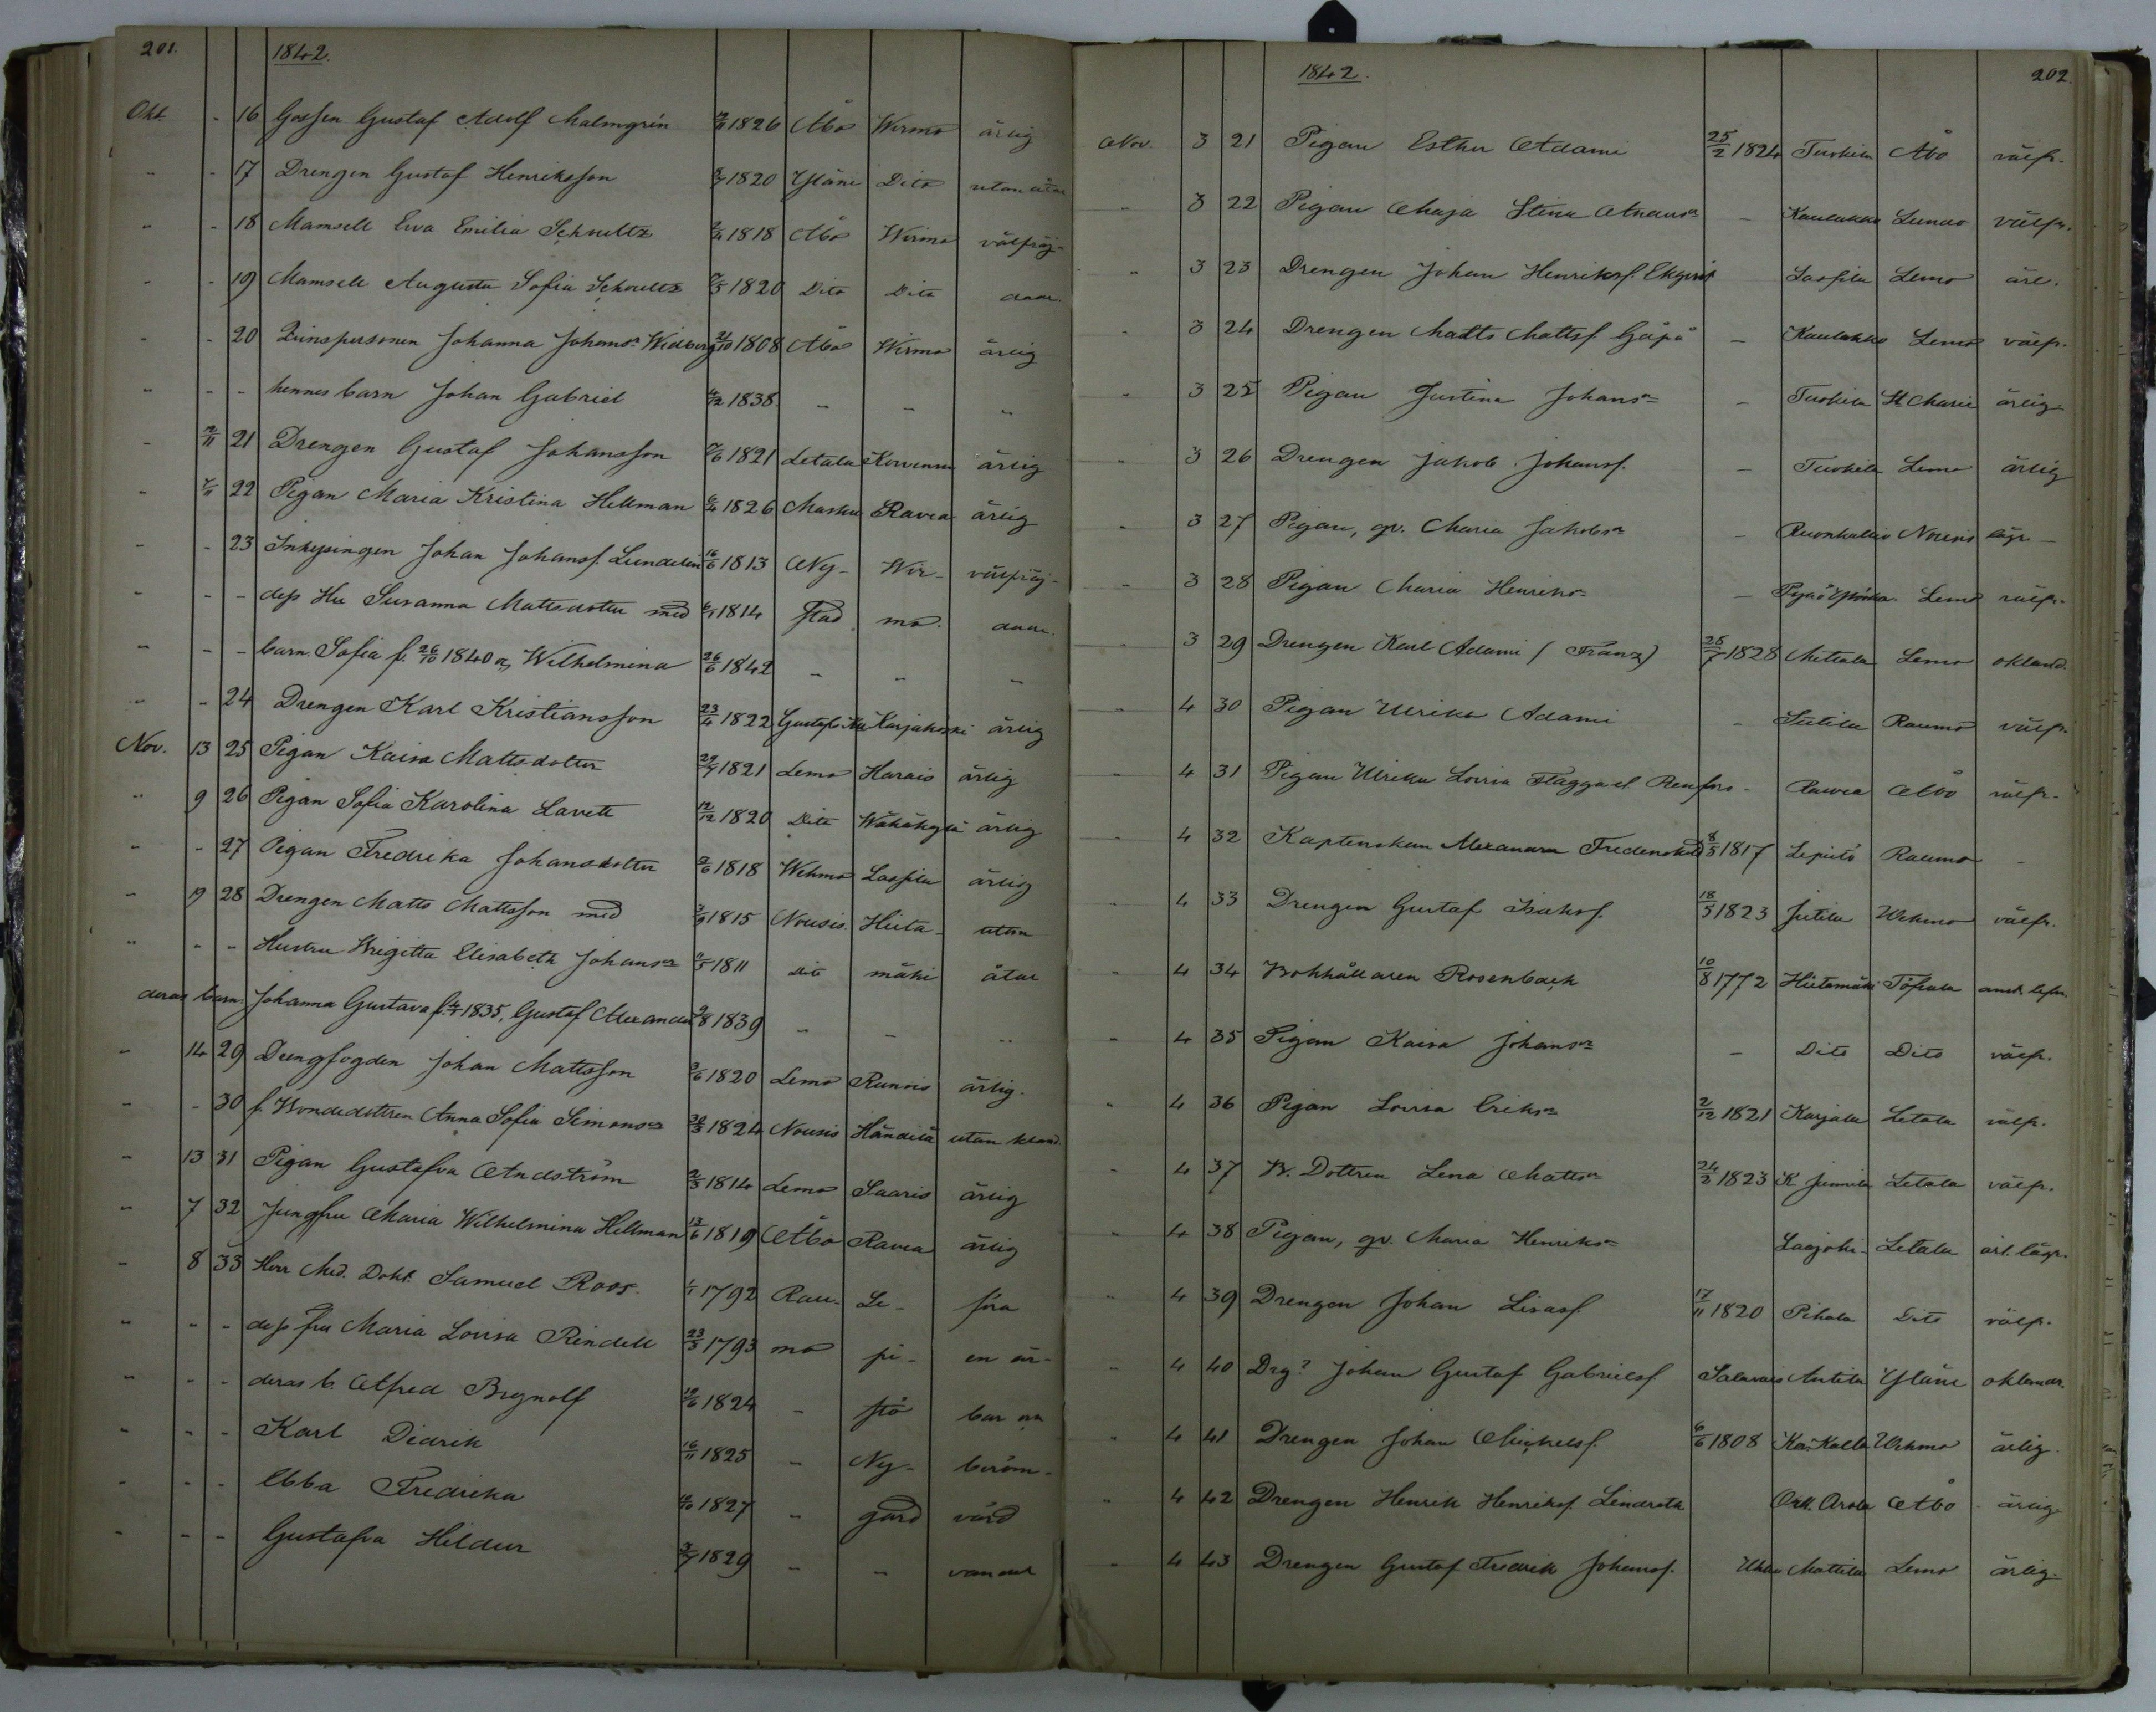 201.
1842.
Okt. - 16 Gossen Gustaf Adolf Malmgrén 1826 Åbo Wirmo ärlig
" - 17 Drengen Gustaf Henriksson 1820 Yläne Dito utan åtal
" - 18 Mamsell Eva Emilia Schoultz 1818 Åbo Wirmo välfräj-
- - 19 Mamsell Augusta Sofia Schoultz 1820 Dito Dito dade.
- - 20 Inhespersonen Johanna Johansr Widberg 1808 Åbo Wirmo ärlig
" - - hennes barn Johan Gabriel 1838 - - "
- 21 Drengen Gustaf Johansson 1821 Letala ärlig
- 22 Pigan Maria Kristina Hellman 1826 Masku Ravea ärlig
- - 23 Inhysingen Johan Johanss. Lundelin 16/6 1813 Ny- Wir- välfräj-
- - - dess Hu Susanna Mattsdotter med 1814 stad mo. dade.
- - - barn Sofia f. 26/10 1840 o, Wilhelmina 26/6 1842 - - -
" - 24 Drengen Karl Kristiansson 23/4 1822 Karjakoski ärlig
Nov. 13 25 Pigan Kaisa Mattsdotter 29/7 1821 Lemo Harais ärlig
" 9 26 Pigan Sofia Karolina Lavett 12/12 1820 Dito Wähäkylä ärlig
- - 27 Pigan Fredrika Johansdotter 1818 Wehmo Laspila ärlig
- 19 28 Drengen Matts Mattsson med 1815 Nousis. Hiita- utan
" - - Hustru Brigitta Elisabeth Johansr 1811 dito mäki åtal
deras barn. Johanna Gustava f. 1835, Gustaf Alexander 1839 - - "
- 14 29 Drengfogden Johan Mattsson 1820 Lemo Runois ärlig.
- - 30 f. Bondedottren Anna Sofia Simonsr 1824 Nousis Händilä utan kland.
- 13 31 Pigan Gustafva Andström 1814 Lemo Saaris ärlig
" 7 32 Jungfru Maria Wilhelmina Hellman 13/6 1819 Åbo Ravea ärlig
- 8 33 Herr Med. Dokt. Samuel Roos. 1/1 1792 Rau- Le- föra
" - - dess fru Maria Lovisa Rindell 23/3 1793 mo pi- en är-
" - - deras b. Alfred Brynolf 1824 - stö bar o
" - - Karl Didrik 16/11 1825 - Ny- beröm-
- - - Ebba Fredrika 1827 - gård värd
- - - Gustafva Hildur 1829 - - vandel
1842.
202.
Nov. 3 21 Pigan Esther Adami 25/2 1824 Tuokila Åbo välfr.
" 3 22 Pigan Maja Stina Andersr - Kaulakko Lundo välfr.
" 3 23 Drengen Johan Henrikss. Ekqvist Laspila Lemo ärl.
" 3 24 Drengen Matts Mattss. Gåpå - Kaulakko Lemo välfr.
" 3 25 Pigan Justina Johansr - Tuokila St Marie ärlig
" 3 26 Drengen Jakob Johanss. - Tuokila Lemo ärlig
" 3 27 Pigan, qv. Maria Jakobsr - Ruonkallio Nousis lägr-
- 3 28 Pigan Maria Henriksr - Lemo välfr.
- 3 29 Drengen Karl Adami (Franz) 28/7 1828 Mettala Lemo okland.
" 4 30 Pigan Ulrika Adami - Siitila Raumo välfr.
" 4 31 Pigan Ulrika Lovisa Flaggad Renfors - Ravea Åbo välfr.
- 4 32 Kaptenskan Alexandra Fredensköld 8/5 1817 Lepistö Raumo -
" 4 33 Drengen Gustaf Isaks. 18/5 1823 Jutila Wehmo välfr.
" 4 34 Bokhållaren Rosenback 10/8 1772 Hiitamäki Töfsala anst. lefn.
- 4 35 Pigan Kaisa Johansr - Dito Dito välfr.
" 4 36 Pigan Lovisa Eriksr 2/12 1821 Karjala Letala välfr.
- 4 37 B. Dottren Lena Mattsr 24/2 1823 K Junnila Letala välfr.
" 4 38 Pigan, qv. Maria Henriksr Laajoki Letala ärl. lägr.
" 4 39 Drengen Johan Lisass. 17/11 1820 Pihala Dito välfr.
" 4 40 Drg? Johan Gustaf Gabrielss. Salavais Antila Yläne oklandr.
" 4 41 Drengen Johan Michelss. 6/6 1808 Wehmo ärlig.
" 4 42 Drengen Henrik Henrikss. Lindroth Arola Åbo ärlig
" 4 43 Drengen Gustaf Fredrik Johanss. Mattila Lemo ärlig.